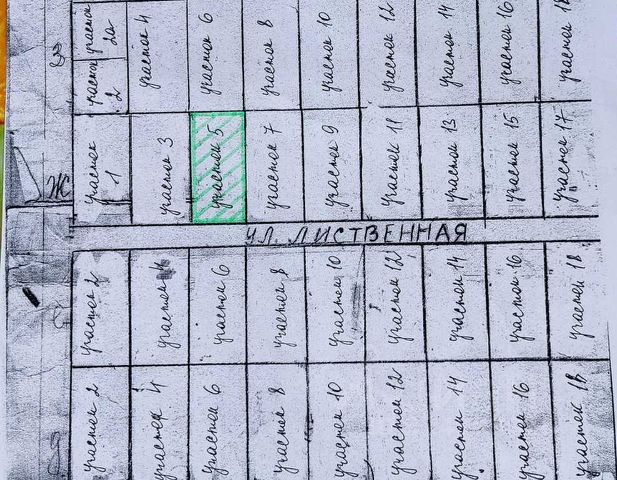 участок 2
участок 2а
участок 4
участок 6
участок 8
участок 10
участок 12
участок 14
участок 16
участок 18
Ж
участок 1
участок 3
участок 5
участок 7
участок 9
участок 11
участок 13
участок 15
участок 17
УЛ. ЛИСТВЕННАЯ
участок 2
участок 4
участок 6
участок 8
участок 10
участок 12
участок 14
участок 16
участок 18
участок 2
участок 4
участок 6
участок 8
участок 10
участок 12
участок 14
участок 16
участок 18